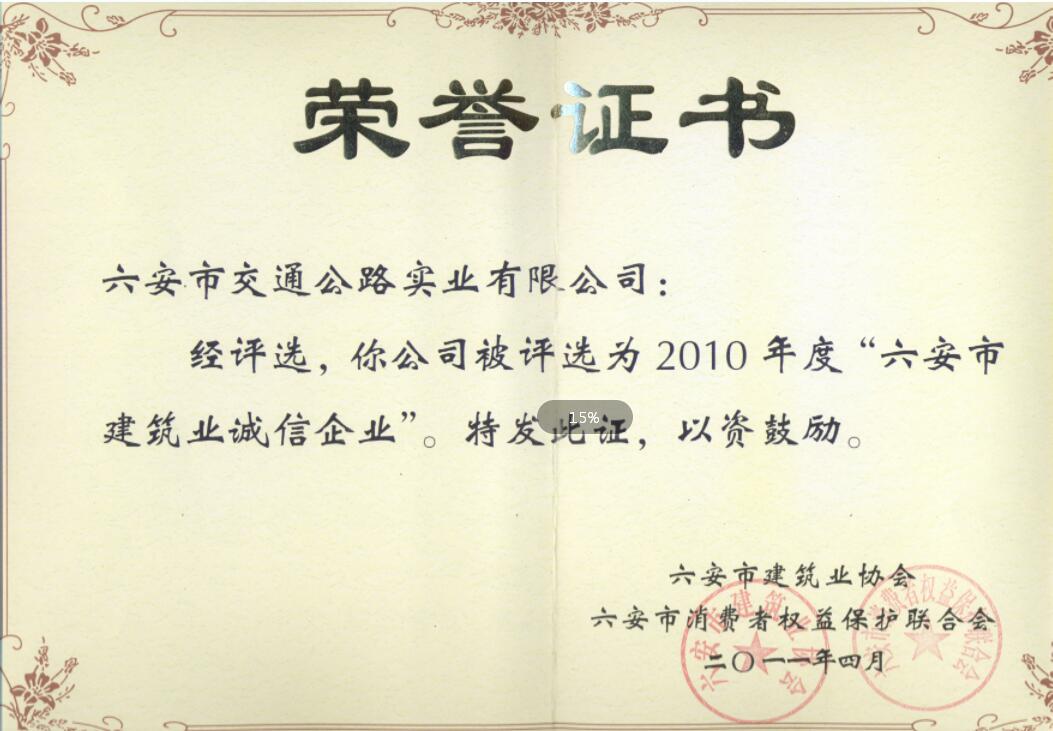 荣誉证书
六安市交通公路实业有限公司：
经评选，你公司被评选为 2010 年度“六安市
建筑业诚信企业”。特发此证，以资鼓励。
15%
六安市建筑业协会
六安市消费者权益保护联合会
二〇一一年四月
六安市建筑业协会
六安市消费者权益保护联合会